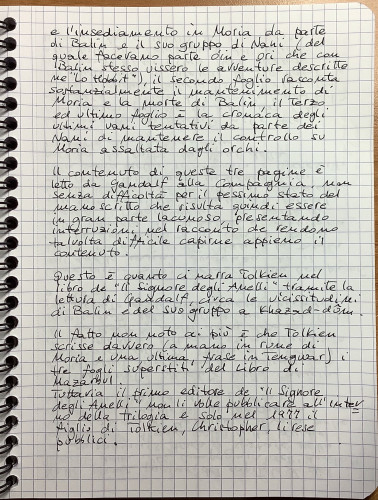 e l'insediamento in Moria da parte
di Balin e il suo gruppo di Nani (del
quale facevano parte Oin e Ori che con
Balin stesso vissero le avventure descritte
ne "Lo Hobbit"), il secondo foglio racconta
sostanzialmente il mantenimento di
Moria e la morte di Balin, il terzo
ed ultimo foglio è la cronaca degli
ultimi vani tentativi da parte dei
Nani di mantenere il controllo su
Moria assaltata dagli orchi.
Il contenuto di queste tre pagine è
letto da Gandalf alla Compagnia non
senza difficoltà per il pessimo stato del
manoscritto che risulta quindi essere
in gran parte lacunoso, presentando
interruzioni nel racconto che rendono
talvolta difficile capirne appieno il
contenuto.
Questo è quanto ci narra Tolkien nel
libro de "Il Signore degli Anelli" tramite la
lettura di Gandalf, circa le vicissitudini
di Balin e del suo gruppo a Khazad-dûm.
Il fatto non noto ai più è che Tolkien
scrisse davvero (a mano in rune di
Moria e una ultima frase in Tengwar) i
tre fogli superstiti del Libro di
Mazarbul.
Tuttavia il primo editore de "Il Signore
degli Anelli" non li volle pubblicare all'inter
no della trilogia e solo nel 1977 il
figlio di Tolkien, Christopher, li rese
pubblici.